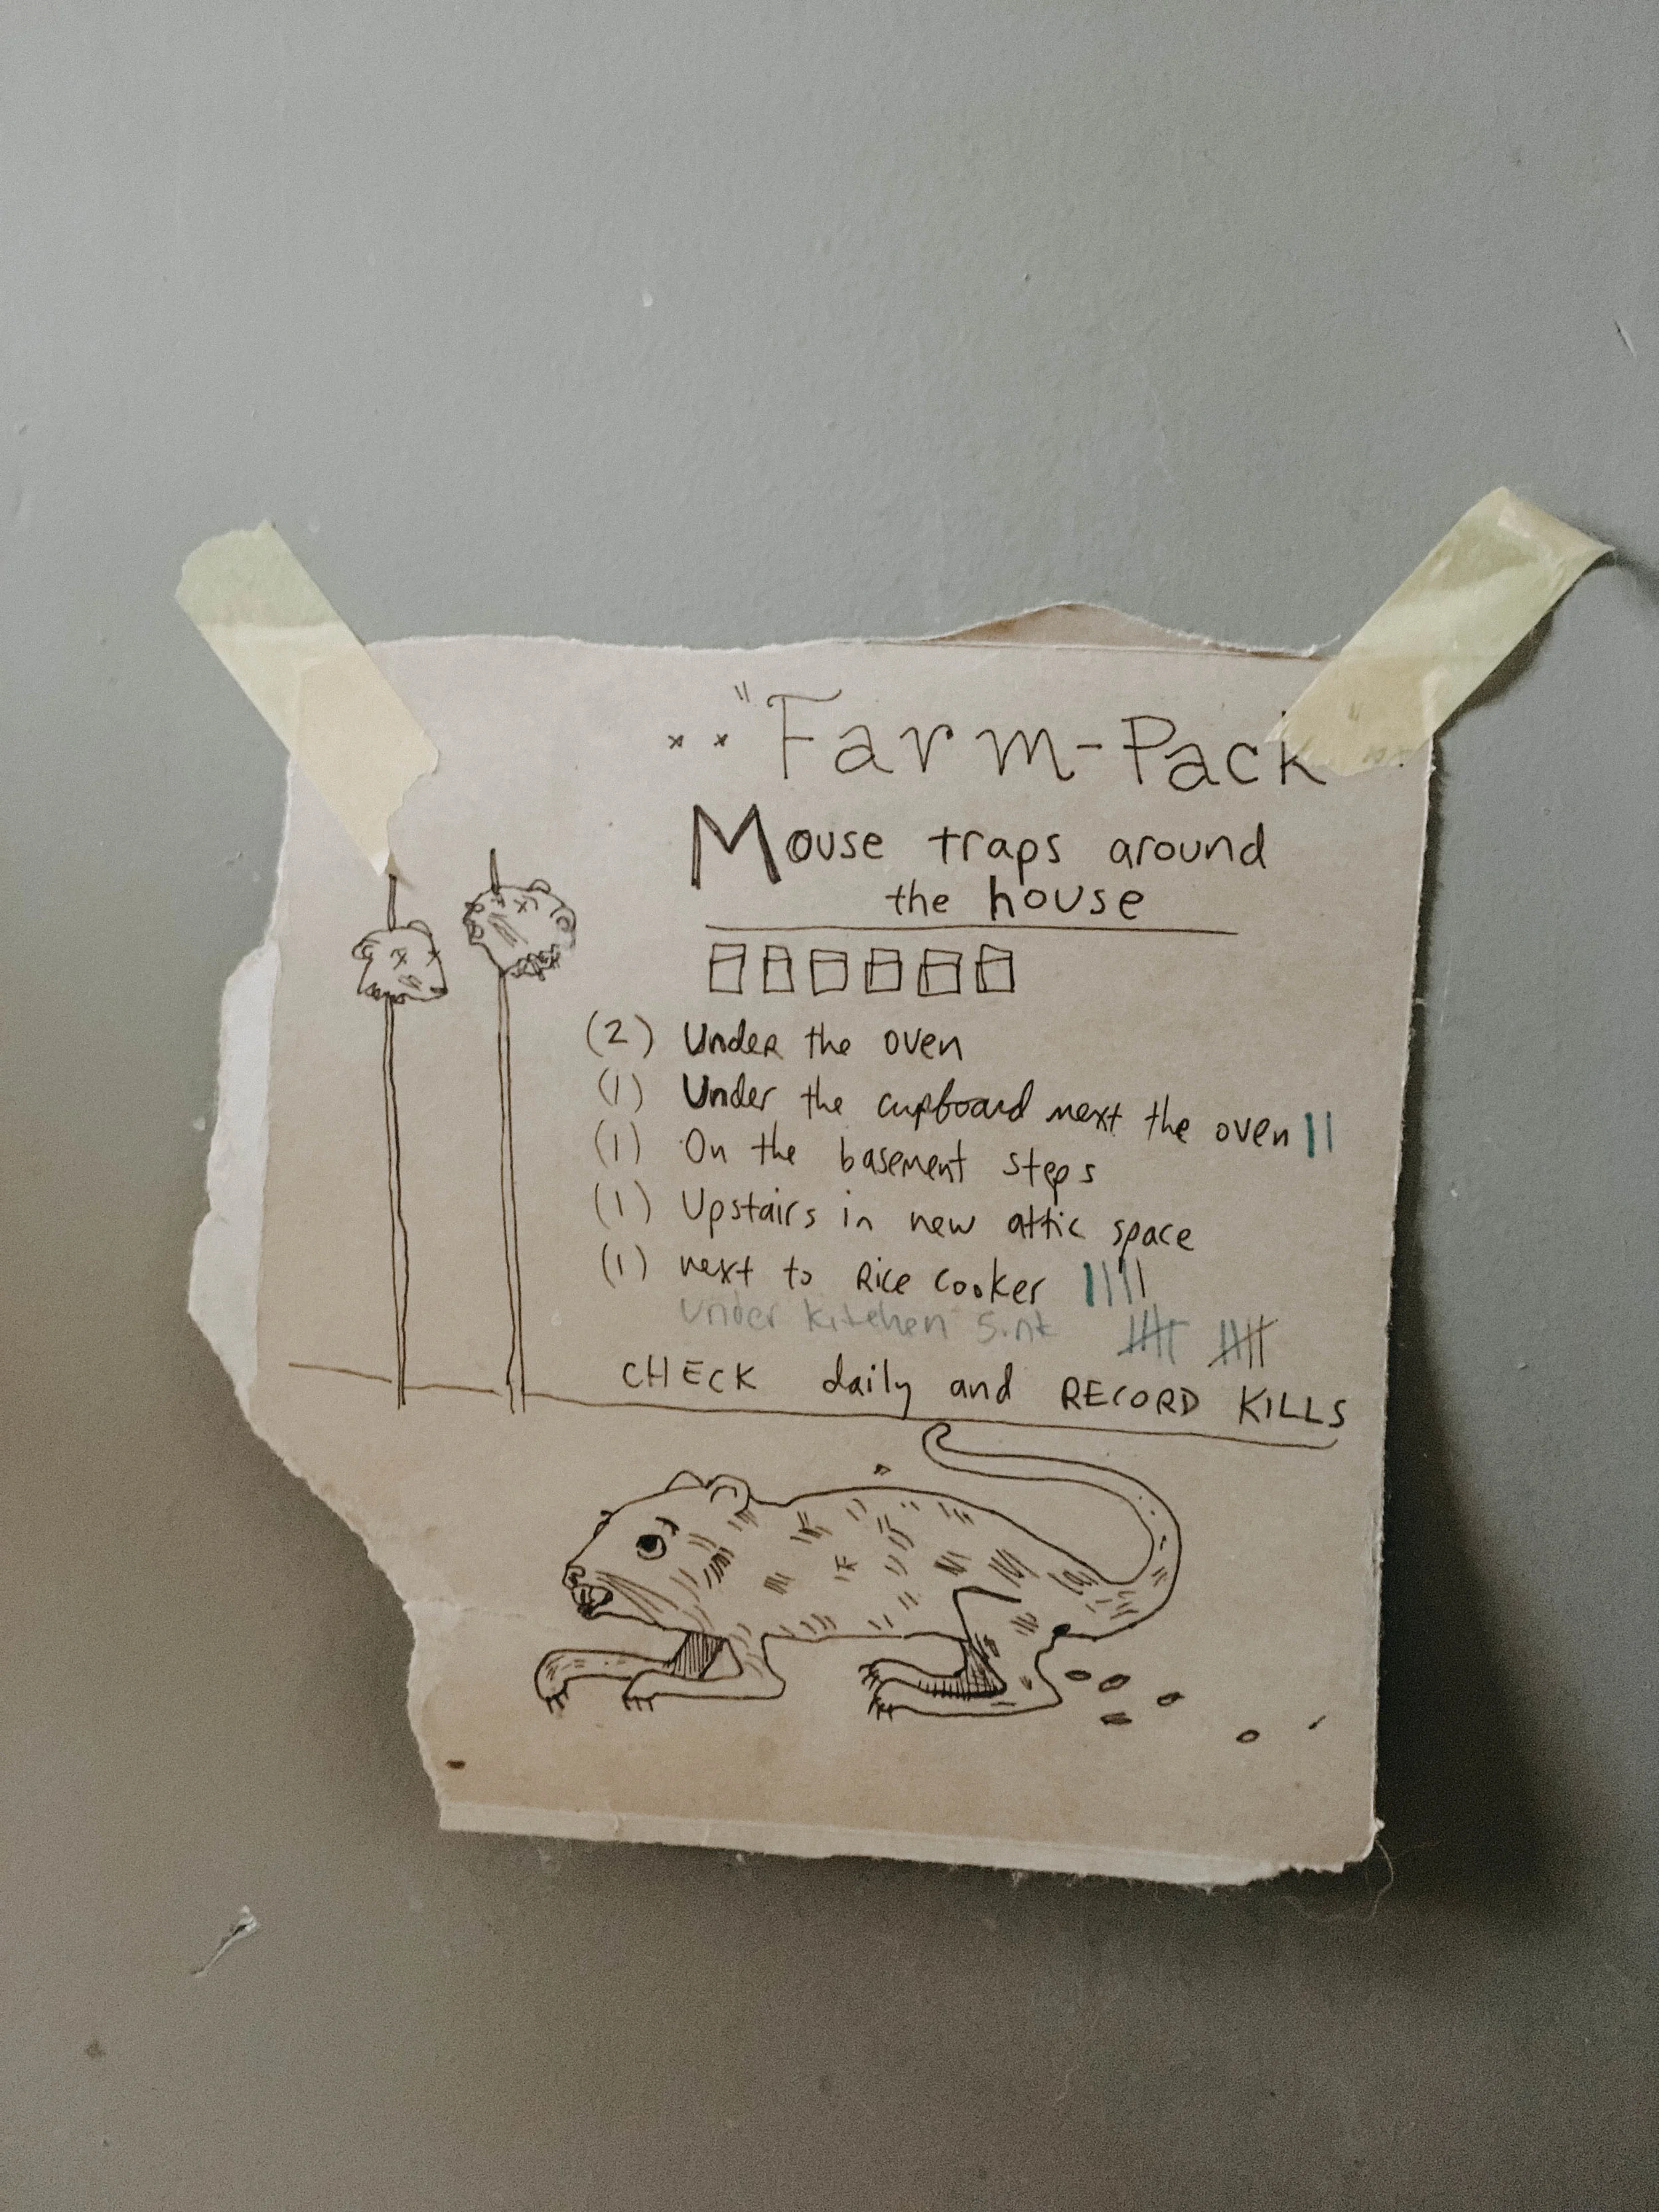 "Farm-Pack
Mouse traps around
the house
(2) Under the oven
(1) Under the cupboard next the oven ||
(1) On the basement steps
(1) Upstairs in new attic space
(1) next to Rice cooker ||||
under kitchen sink
CHECK daily and RECORD KILLS